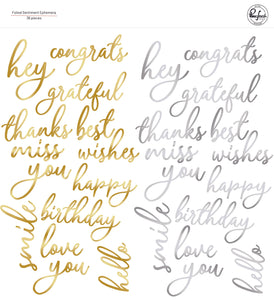 Foiled Sentiment Ephemera
28 pieces
hey congrats
grateful
thanks best
miss wishes
you
happy
smile birthday
love
you hello
hey congrats
grateful
thanks best
miss wishes
you
happy
smile birthday
love
you hello